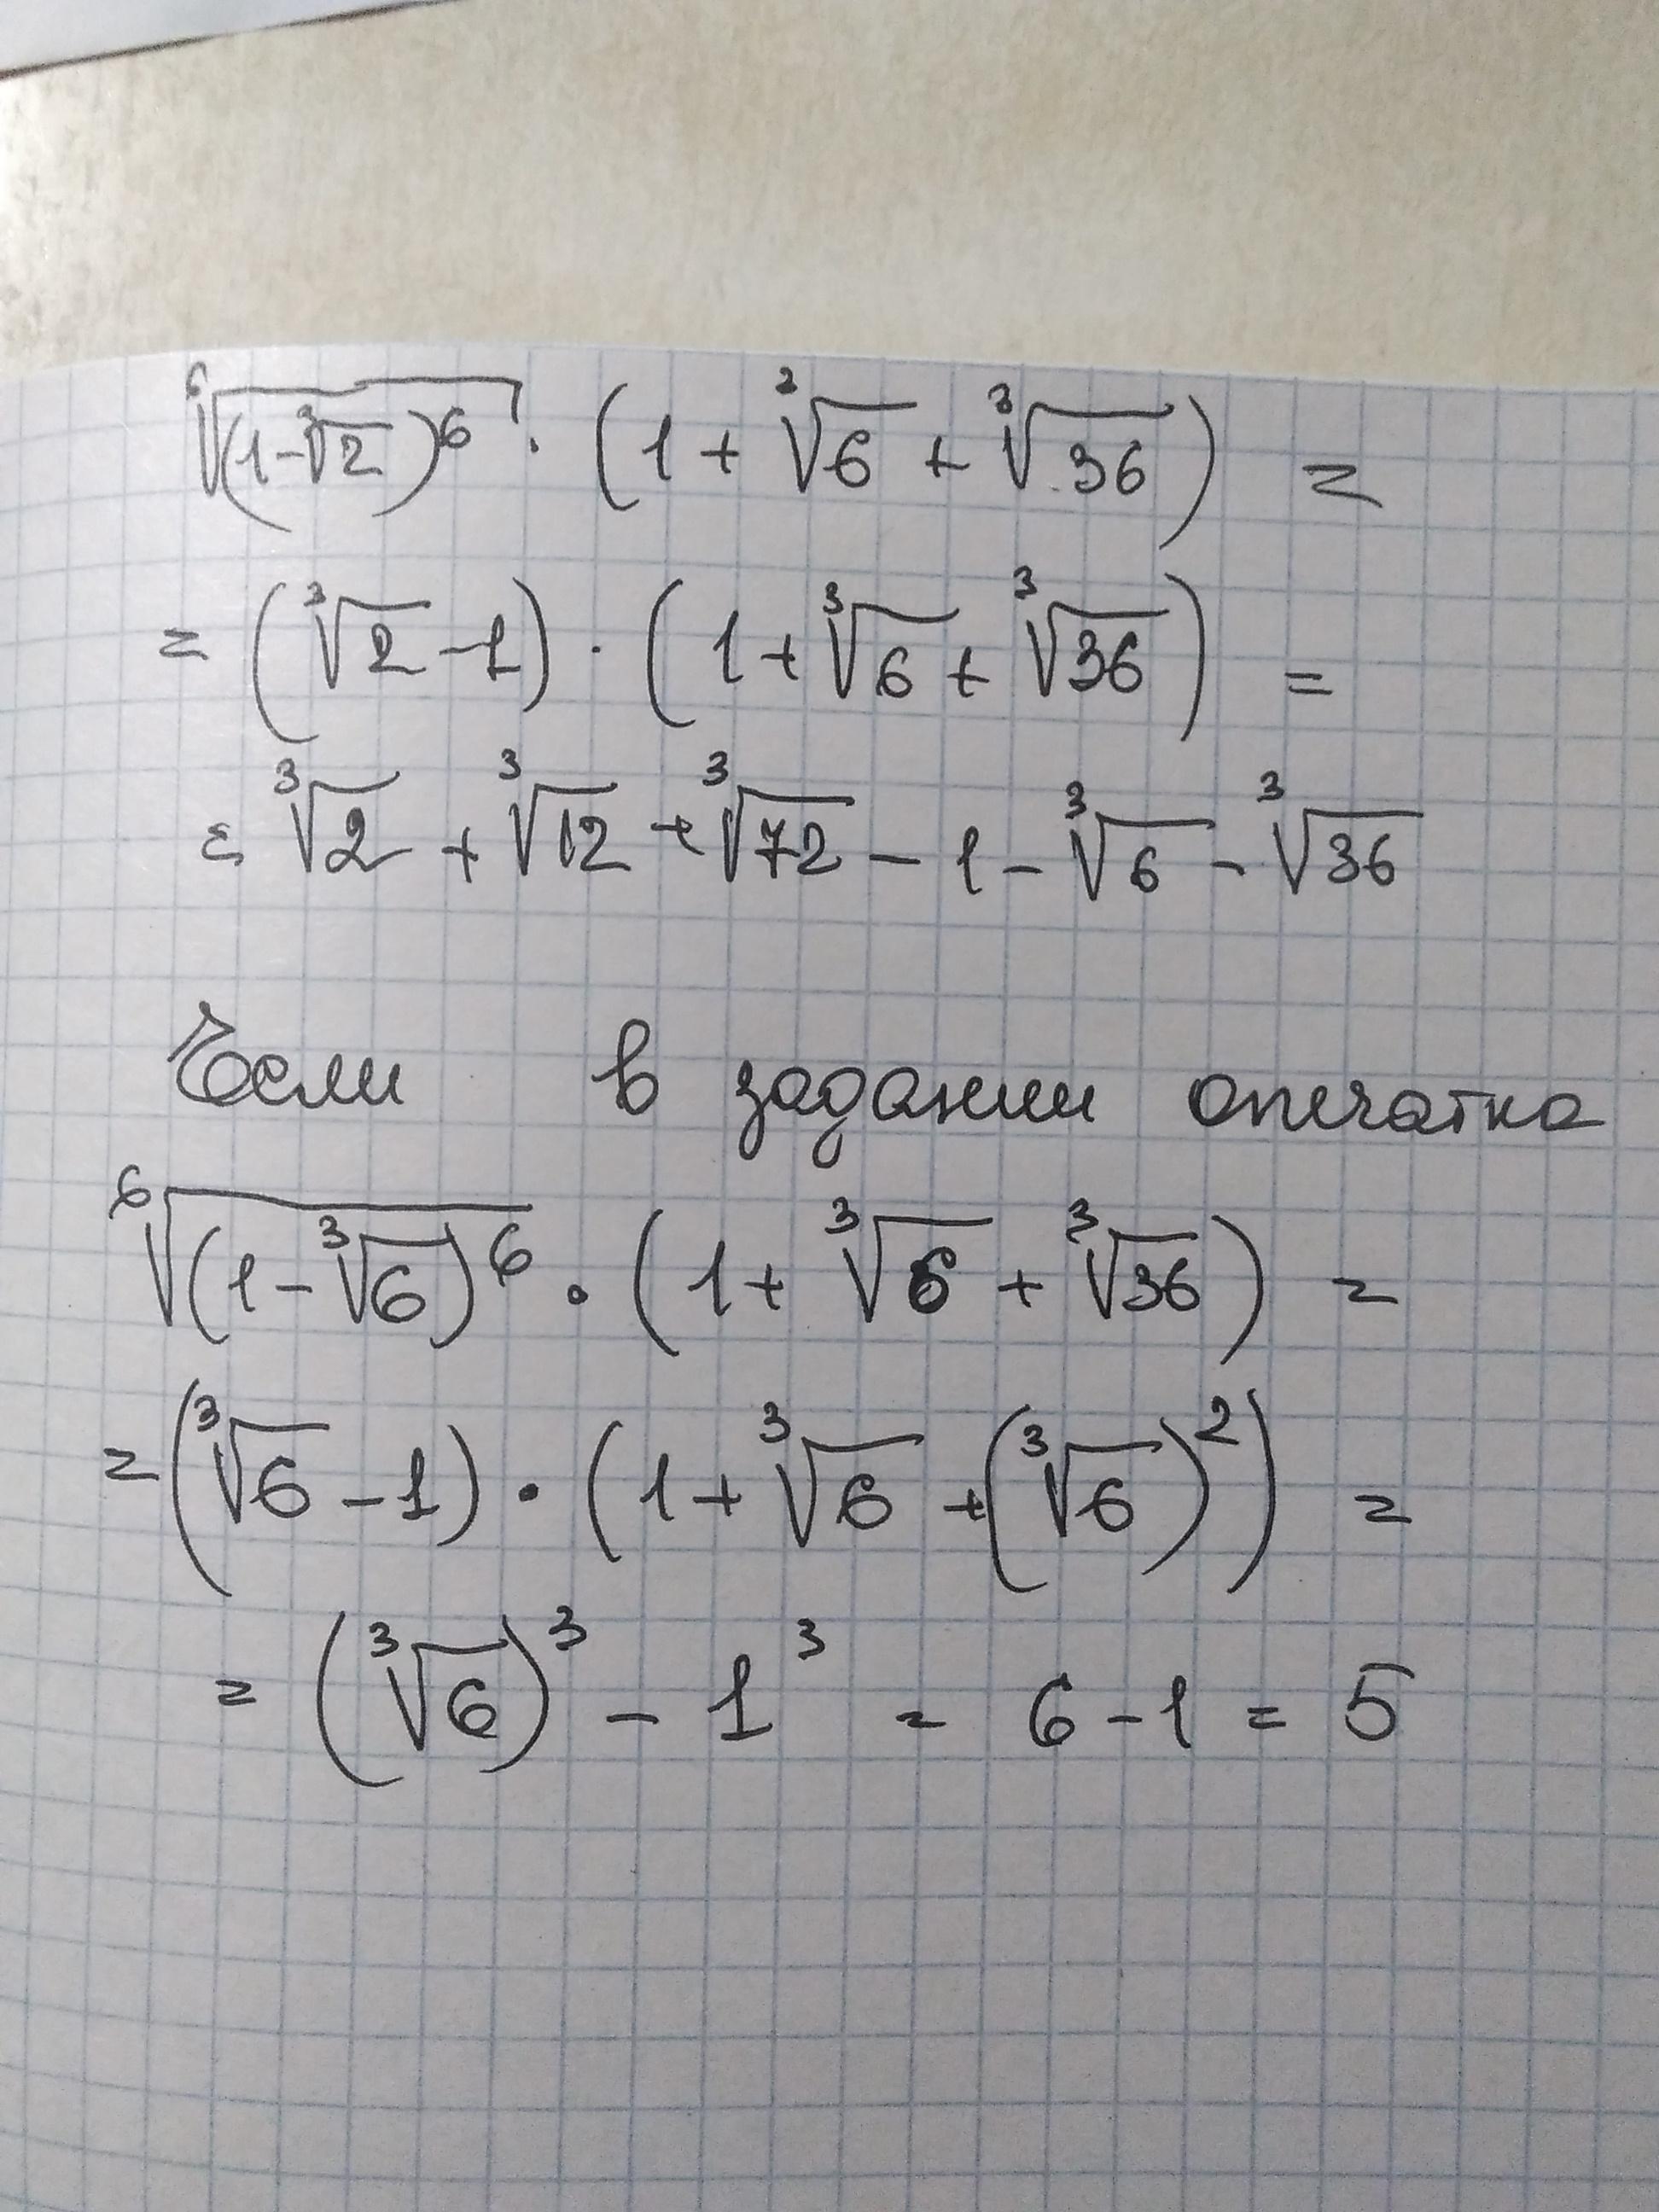 ⁶√(1-³√2)⁶ · (1 + ³√6 + ³√36) =
= (³√2 - 1) · (1 + ³√6 + ³√36) =
= ³√2 + ³√12 + ³√72 - 1 - ³√6 - ³√36
Если в задании опечатка
⁶√(1-³√6)⁶ · (1 + ³√6 + ³√36) =
= (³√6 - 1) · (1 + ³√6 + (³√6)²) =
= (³√6)³ - 1³ = 6 - 1 = 5